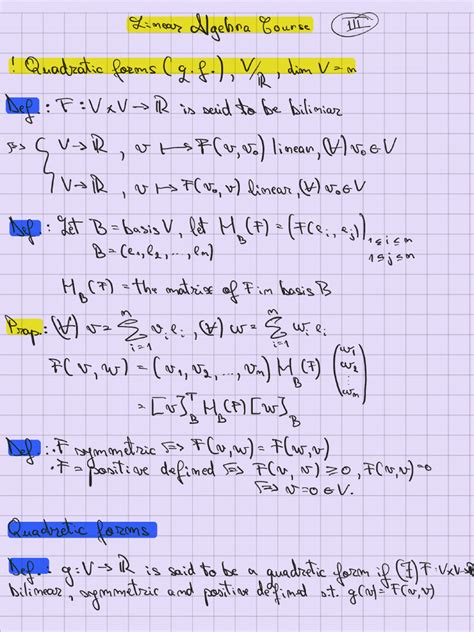 Linear Algebra Course III
! Quadratic forms (q.f.), V/ℝ, dim V = n
Def : F : V×V → ℝ is said to be biliniar
⇔ { V → ℝ, v ⟼ F(v, v₀) linear, (∀) v₀ ∈ V
V → ℝ, v ⟼ F(v₀, v) linear, (∀) v₀ ∈ V
Def : Let B = basis V, let M_B(F) = (F(e_i, e_j)) 1≤i≤n
B = (e₁, e₂, ..., e_n) 1≤j≤n
M_B(F) = the matrix of F in basis B
Prop : (∀) v = Σ_{i=1}^{n} v_i e_i, (∀) w = Σ_{i=1}^{n} w_i e_i
F(v, w) = (v₁, v₂, ..., v_n) M_B(F) (w₁ w₂ ⋮ w_n)
= [v]_B^T M_B(F) [w]_B
Def : · F symmetric ⇔ F(v, w) = F(w, v)
· F = positive defined ⇔ F(v, v) ≥ 0, F(v, v) = 0
⇔ v = 0 ∈ V.
Quadratic forms
Def : g : V → ℝ is said to be a quadratic form if (∃) F : V×V → ℝ
bilinear, symmetric and positive defined s.t. g(v) = F(v, v)